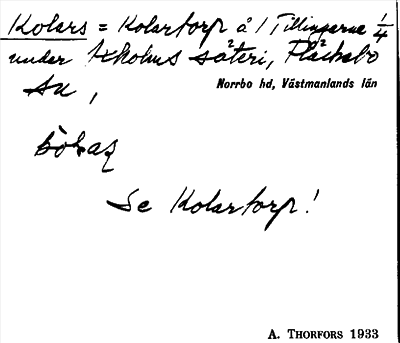 Kolars = Kolartorp å / Tillingarne 1/4
under Ekholms säteri,
Norrbo hd, Västmanlands län
Se Kolartorp!
A. THORFORS 1933